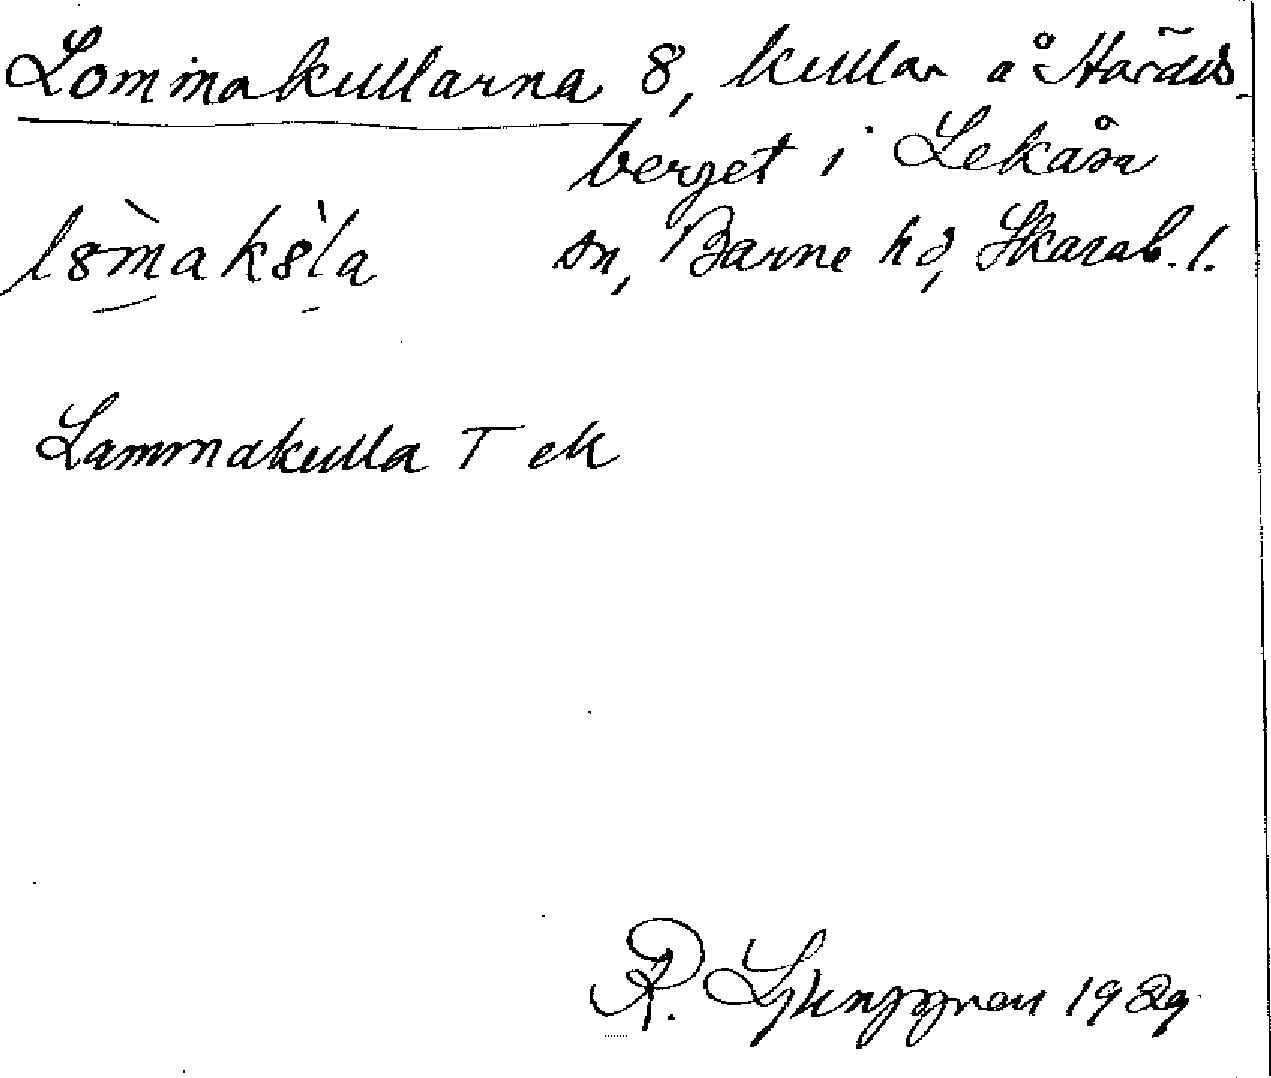 Lommakullarna 8, kullar å Härads-
berget i Lekåsa
sn, Barne hd, Skarab. l.
l8̀mak8̀la
Lammakulla T ek
R. Ljunggren 1929